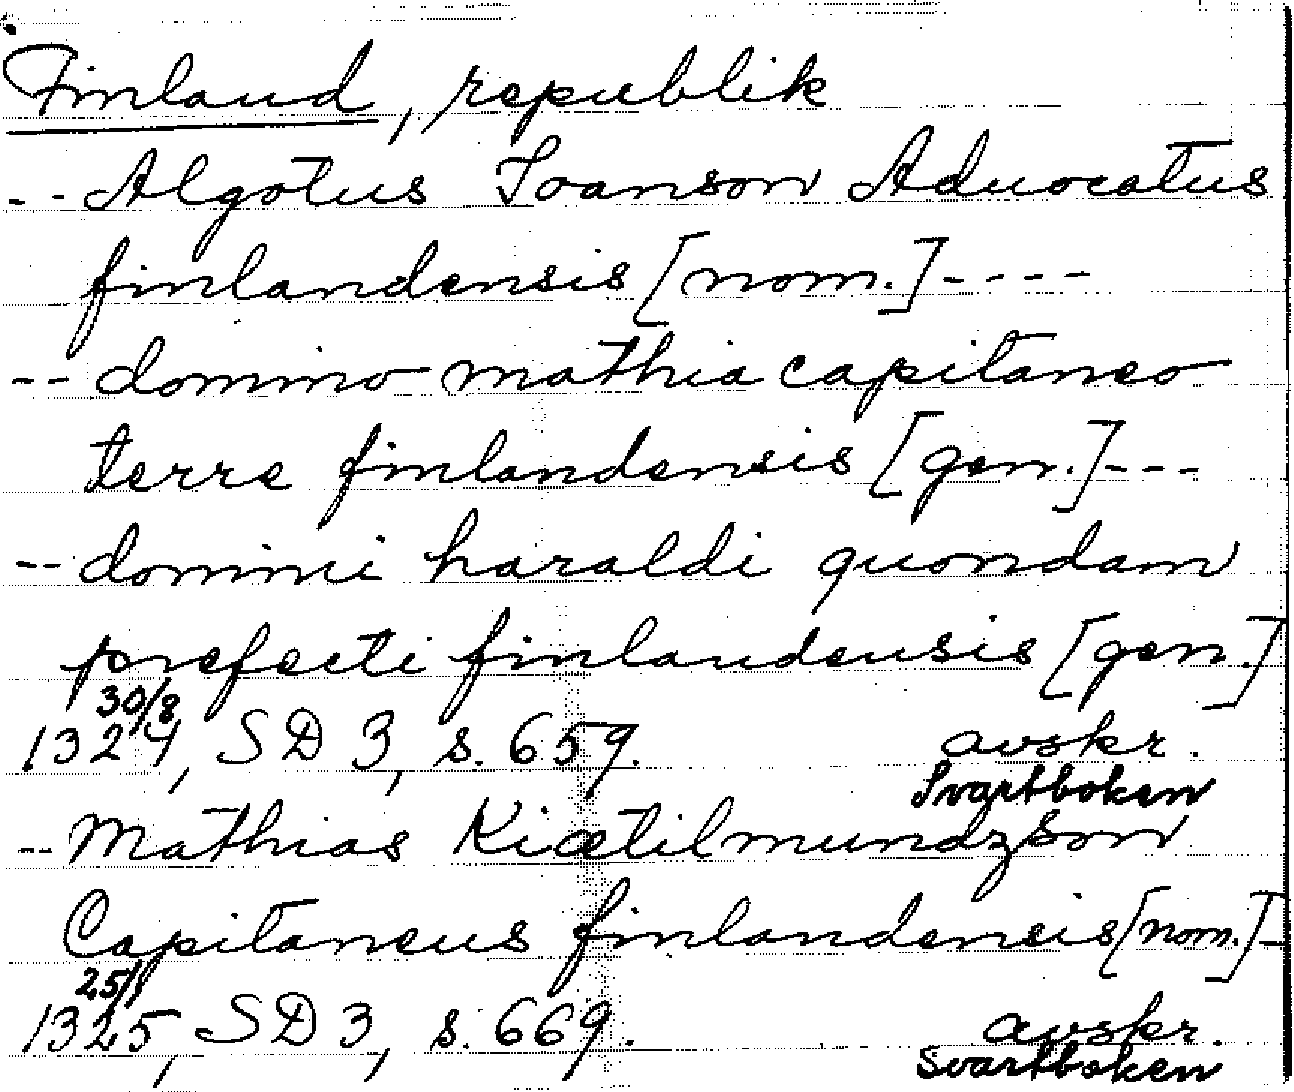 Finland, republik
-- Algotus Joanson Aduocatus
finlandensis [nom.] ----
-- domino mathia capitaneo
terre finlandensis [gen.] ---
-- domini haraldi quondam
prefecti finlandensis [gen.]
30/8
1324, SD 3, s. 659. avskr.
Svartboken
-- Mathias Kiætilmundzson
Capitaneus finlandensis [nom.] -
25/1
1325, SD 3, s. 669. avskr.
Svartboken